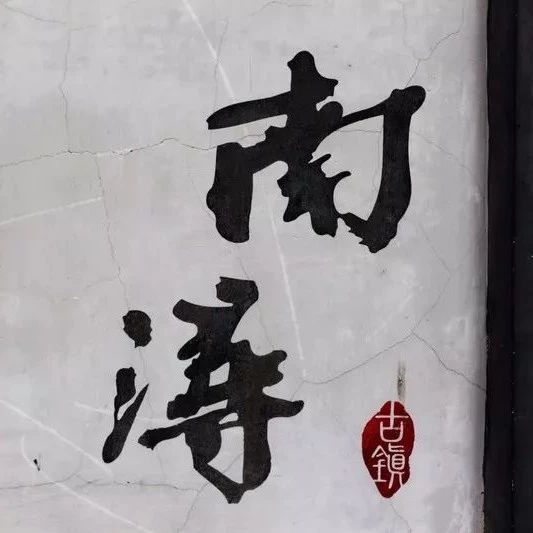 南
浔
古鎮